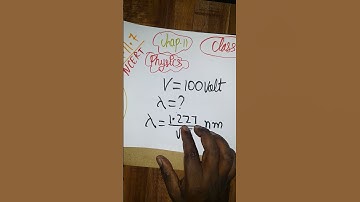 11.7
NCERT
Chap-11
Class
Physics
V=100volt
λ=?
λ=1.227 nm